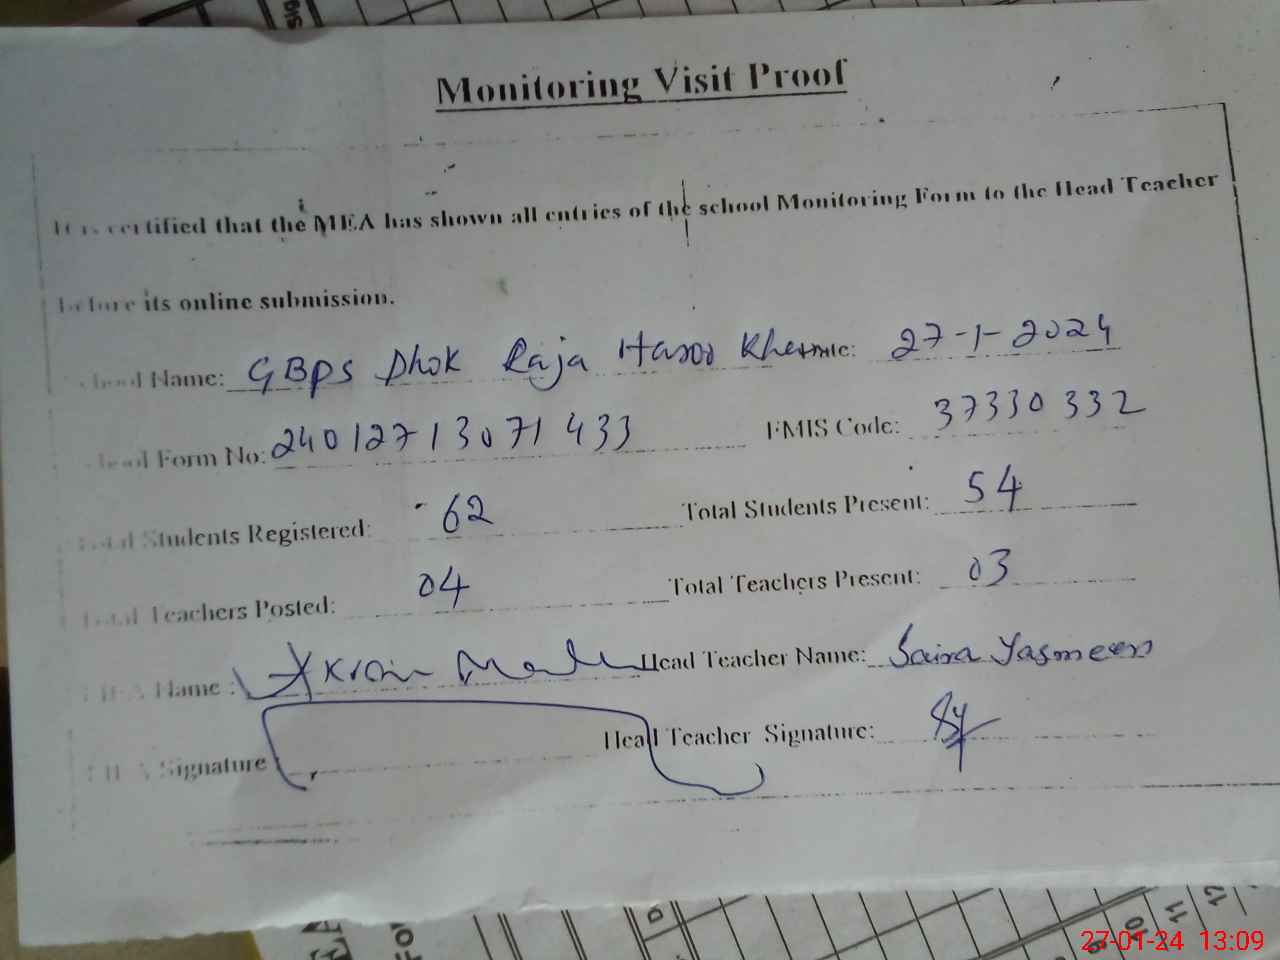 Monitoring Visit Proof
It is certified that the MEA has shown all entries of the school Monitoring Form to the Head Teacher
before its online submission.
School Name: GBPS Dhok Raja Date: 27-1-2024
School Form No: 24012713071433 EMIS Code: 37330332
Total Students Registered: 62 Total Students Present: 54
Total Teachers Posted: 04 Total Teachers Present: 03
MEA Name: Akram Head Teacher Name: Saira Yasmeen
MEA Signature Head Teacher Signature:
27-01-24 13:09